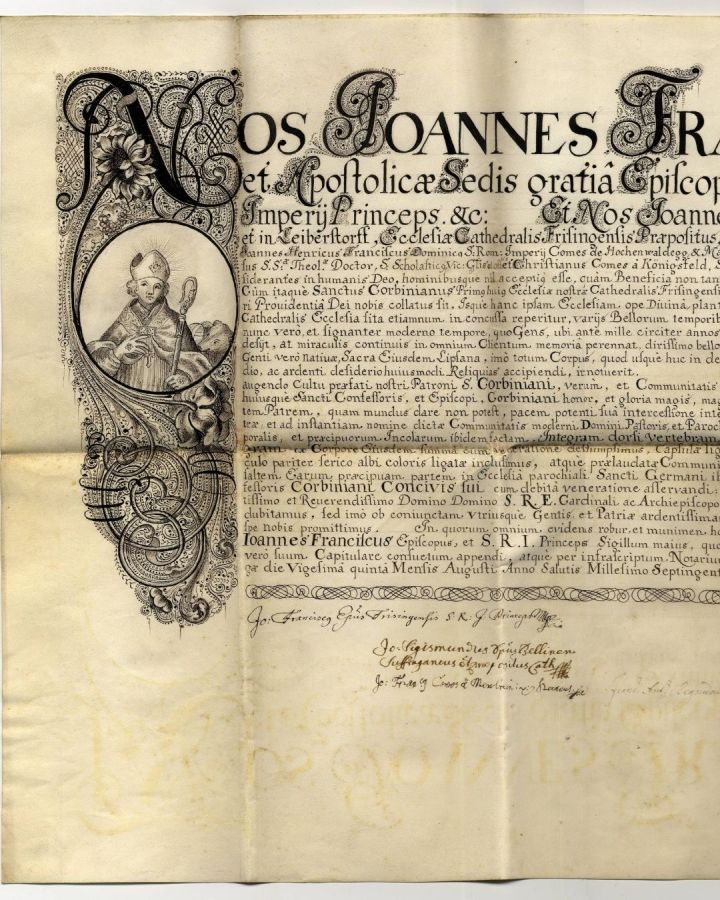 NOS JOANNES FRA
et Apostolicæ Sedis gratiâ Episcop
Imperij Princeps. &c: Et Nos Joanne
et in Leiberstorff, Ecclesiæ Cathedralis Frisingensis Præpositus,
Joannes Henricus Franciscus Dominicus S: Rom: Imperij Comes de Hochenwaldegg & Ma
sus S.Sæ Theolæ Doctor, S. Christianus Comes à Königsfeld, S
siderantes in humanis Deo, hominibusque nil acceptiq esse, quàm Beneficia non tan
Cùm itaque Sanctus Corbinianus Primq huiq Ecclesiæ nostræ Cathedralis Frisingensis
ri Providentiâ Dei nobis collatus sit, Isque hanc ipsam Ecclesiam, ope Divinâ, plant
Cathedralis Ecclesia sita etiamnum in concussa reperitur, varijs Bellorum temporib
nunc verò, et signanter moderno tempore, quo Gens, ubi ante mille circiter annos
desijt, at miraculis continuis in omnium Clientum memoriâ perennat, dirissimo bello
Genti verò nativæ, Sacra Eiusdem Lipsana, imò totum Corpus, quod usque huc in de
dio, ac ardenti desiderio huiusmodi Reliquias accipiendi, innotuerit.
augendo Cultu præfati nostri Patroni S. Corbiniani, verùm, et Communitatis
huiusque Sancti Confessoris, et Episcopi, Corbiniani honor, et gloria magis, mag
tem Patrem, quam mundus dare non potest, pacem potenti suâ intercessione inte
træ, et ad instantiam nomine dictæ Communitatis moderni Domini Pastoris, et Paroch
poralis, et præcipuorum Incolarum ibidem factam, Integram dorsi vertebram
Corpore Eiusdem summâ cum veneratione desumpsimus, Capsulâ lig
culo pariter serico albi coloris ligatæ inclusimus, atque prælaudatæ Commun
saltem Earum præcipuam partem in Ecclesia parochiali Sancti Germani ib
fessoris Corbiniani Concivis sui cum debitâ veneratione asservandi:
tissimo et Reverendissimo Domino Domino S. R. E. Cardinali ac Archiepiscopo
dubitamus, sed imò ob coniunctam Vtriusque Gentis et Patriæ ardentissimam
spe nobis promittimus. In quorum omnium, evidens robur, et munimen, ha
Ioannes Franciscus Episcopus, et S. R. I. Princeps Sigillum maius, quo
verò suum Capitulare consuetum appendi, atque per infrascriptum Notarium
gæ die Vigesima quinta Mensis Augusti Anno Salutis Millesimo Septingent
Jo: Franciscq Epûs Frisingensis S. R. J. Princeps
Jo: Sigismundus Epûs Bellinen
Suffraganeus et Præpositus Cath